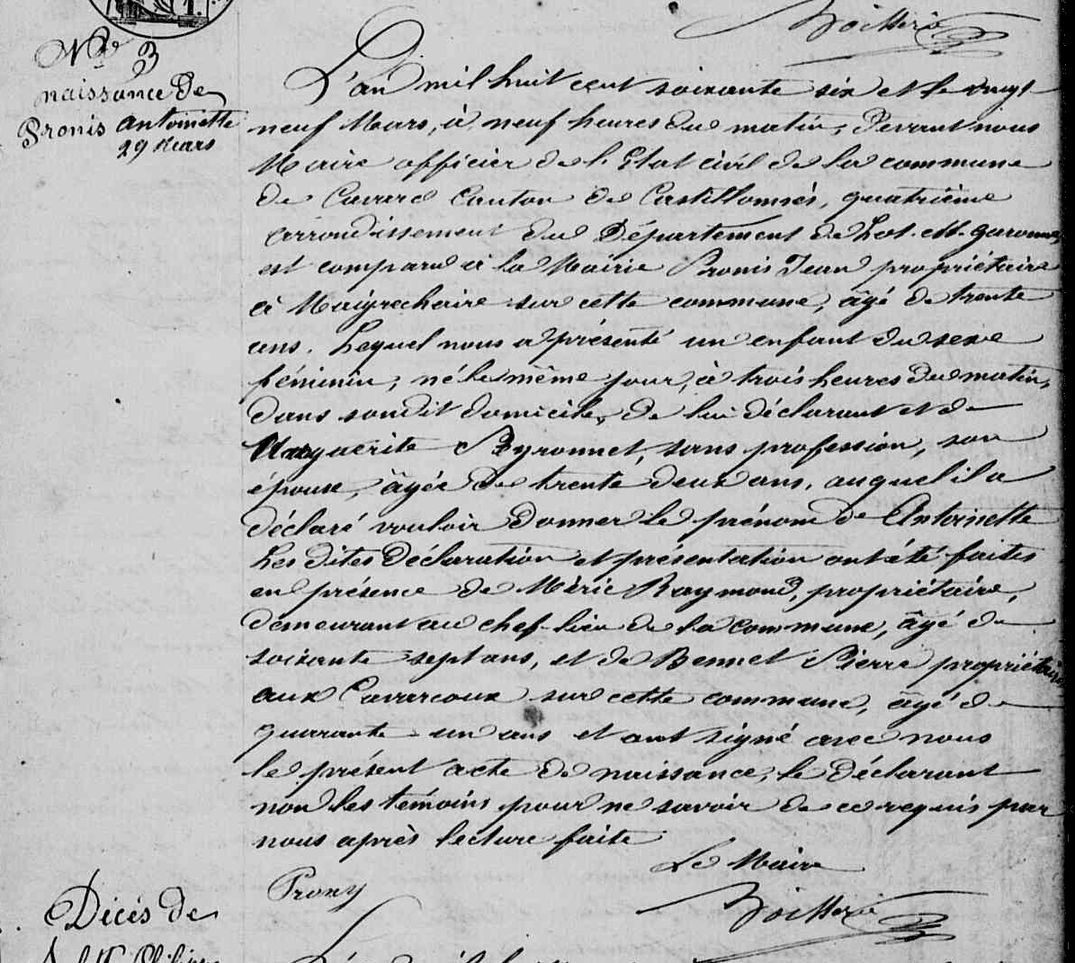 Nº 3
naissance de
Pronis Antoinette
29 Mars
L'an mil huit cent soixante six et le vingt
neuf Mars, à neuf heures du matin, Devant nous
Maire officier de l'Etat civil de la commune
de Cavarc Canton de Castillonnès, quatrième
arrondissement du Département de Lot-et-Garonne,
est comparu à la Mairie Pronis Jean propriétaire
à Maigrechaire sur cette commune, âgé de trente
ans. Lequel nous a présenté un enfant du sexe
féminin, né le même jour, à trois heures du matin,
dans son dit domicile, de lui déclarant et de
Marguerite Peyronnet, sans profession, son
épouse, âgée de trente deux ans, auquel il a
déclaré vouloir donner le prénom de Antoinette
Les dites déclaration et présentation ont été faites
en présence de Méric Raymond, propriétaire,
demeurant au chef-lieu de la commune, âgé de
soixante sept ans, et de Bonnet Pierre propriétaire
aux Cavarcoux sur cette commune, âgé de
quarante un ans et ont signé avec nous
le présent acte de naissance, le déclarant
non les témoins pour ne savoir de ce requis par
nous après lecture faite
Le Maire
Prony
Décès de